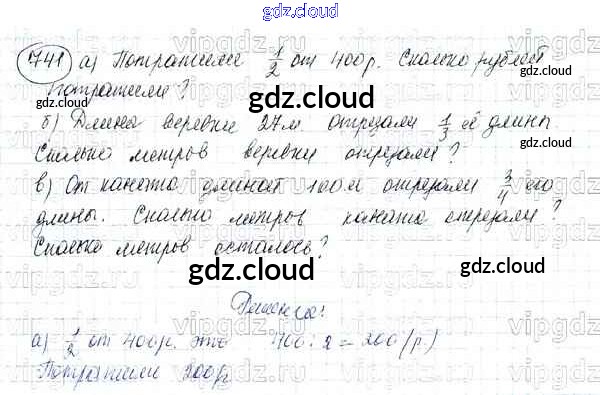 gdz.cloud
741 а) Потратили 1/2 от 400р. Сколько рублей
потратили?
gdz.cloud
б) Длина веревки 27м. отрезали 1/3 её длины.
Сколько метров веревки отрезали?
в) От каната длиной 100м отрезали 3/4 его
длины. Сколько метров каната отрезали?
Сколько метров осталось?
gdz.cloud gdz.cloud
Решение:
а) 1/2 от 400р. это 400:2=200(р.)
Потратили 200р
gdz.cloud